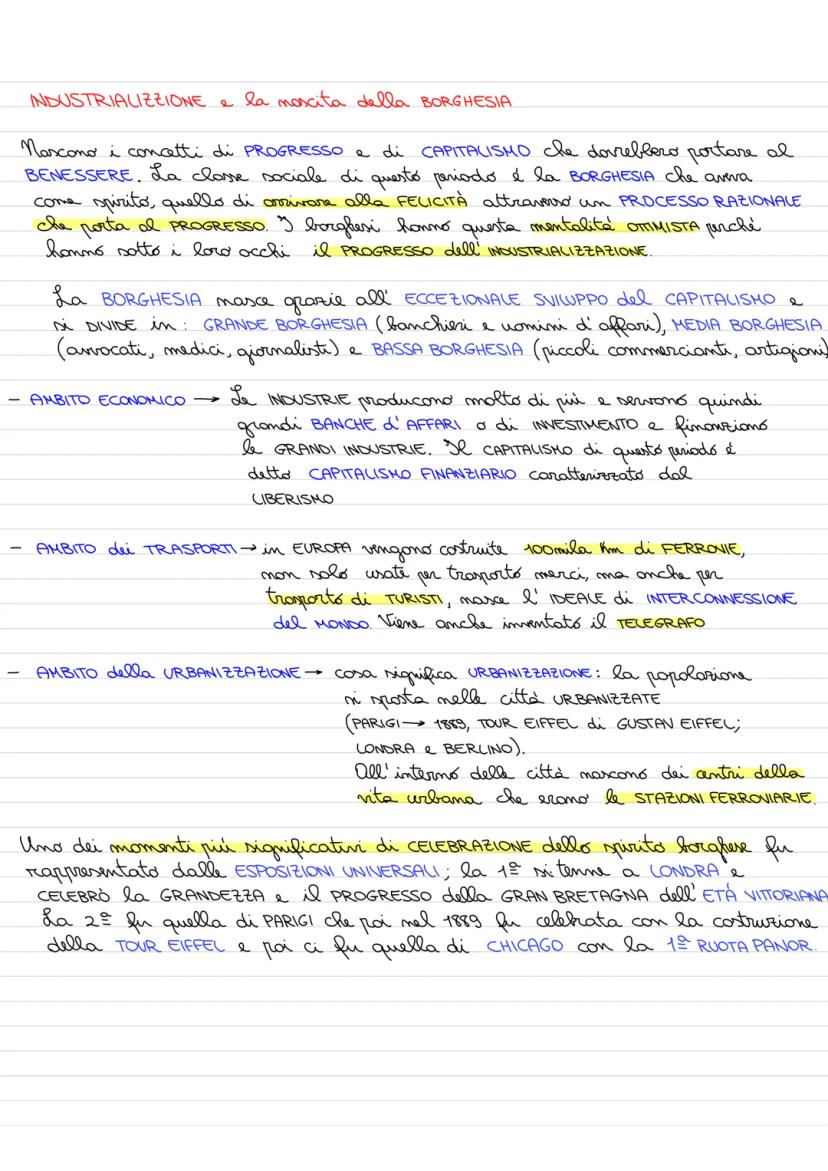 INDUSTRIALIZZIONE e la nascita della BORGHESIA
Nascono i concetti di PROGRESSO e di CAPITALISMO che dovrebbero portare al
BENESSERE. La classe sociale di questo periodo è la BORGHESIA che aveva
come spirito, quello di arrivare alla FELICITÀ attraverso un PROCESSO RAZIONALE
che porta al PROGRESSO. I borghesi hanno questa mentalità OTTIMISTA perché
hanno sotto i loro occhi il PROGRESSO dell'INDUSTRIALIZZAZIONE.
La BORGHESIA nasce grazie all'ECCEZIONALE SVILUPPO del CAPITALISMO e
si DIVIDE in: GRANDE BORGHESIA (banchieri e uomini d'affari), MEDIA BORGHESIA
(avvocati, medici, giornalisti) e BASSA BORGHESIA (piccoli commercianti, artigiani)
- AMBITO ECONOMICO → Le INDUSTRIE producono molto di più e servono quindi
grandi BANCHE d'AFFARI o di INVESTIMENTO e finanziano
le GRANDI INDUSTRIE. Il CAPITALISMO di questo periodo è
detto CAPITALISMO FINANZIARIO caratterizzato dal
LIBERISMO
- AMBITO dei TRASPORTI → in EUROPA vengono costruite 100mila km di FERROVIE,
non solo usate per trasporto merci, ma anche per
trasporto di TURISTI, nasce l'IDEALE di INTERCONNESSIONE
del MONDO. Viene anche inventato il TELEGRAFO
- AMBITO della URBANIZZAZIONE → cosa significa URBANIZZAZIONE: la popolazione
si sposta nelle città URBANIZZATE
(PARIGI → 1889, TOUR EIFFEL di GUSTAV EIFFEL;
LONDRA e BERLINO).
All'interno delle città nascono dei centri della
vita urbana che erano le STAZIONI FERROVIARIE.
Uno dei momenti più significativi di CELEBRAZIONE dello spirito borghese fu
rappresentato dalle ESPOSIZIONI UNIVERSALI; la 1ª si tenne a LONDRA e
CELEBRÒ la GRANDEZZA e il PROGRESSO della GRAN BRETAGNA dell'ETÀ VITTORIANA
La 2ª fu quella di PARIGI che poi nel 1889 fu celebrata con la costruzione
della TOUR EIFFEL e poi ci fu quella di CHICAGO con la 1ª RUOTA PANOR.